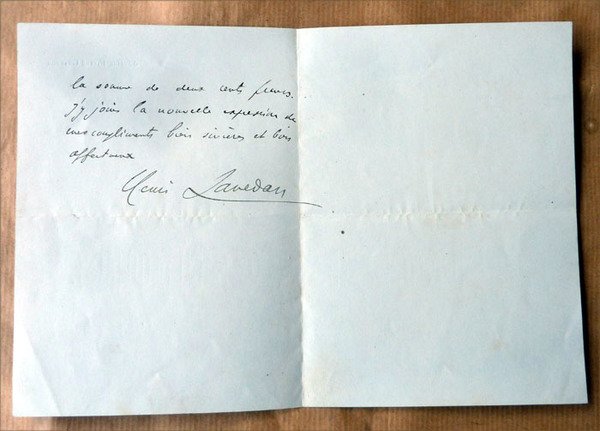 la somme de deux cents francs.
J'y joins la nouvelle expression de
mes compliments bien sincères et bien
affectueux
Henri Lavedan